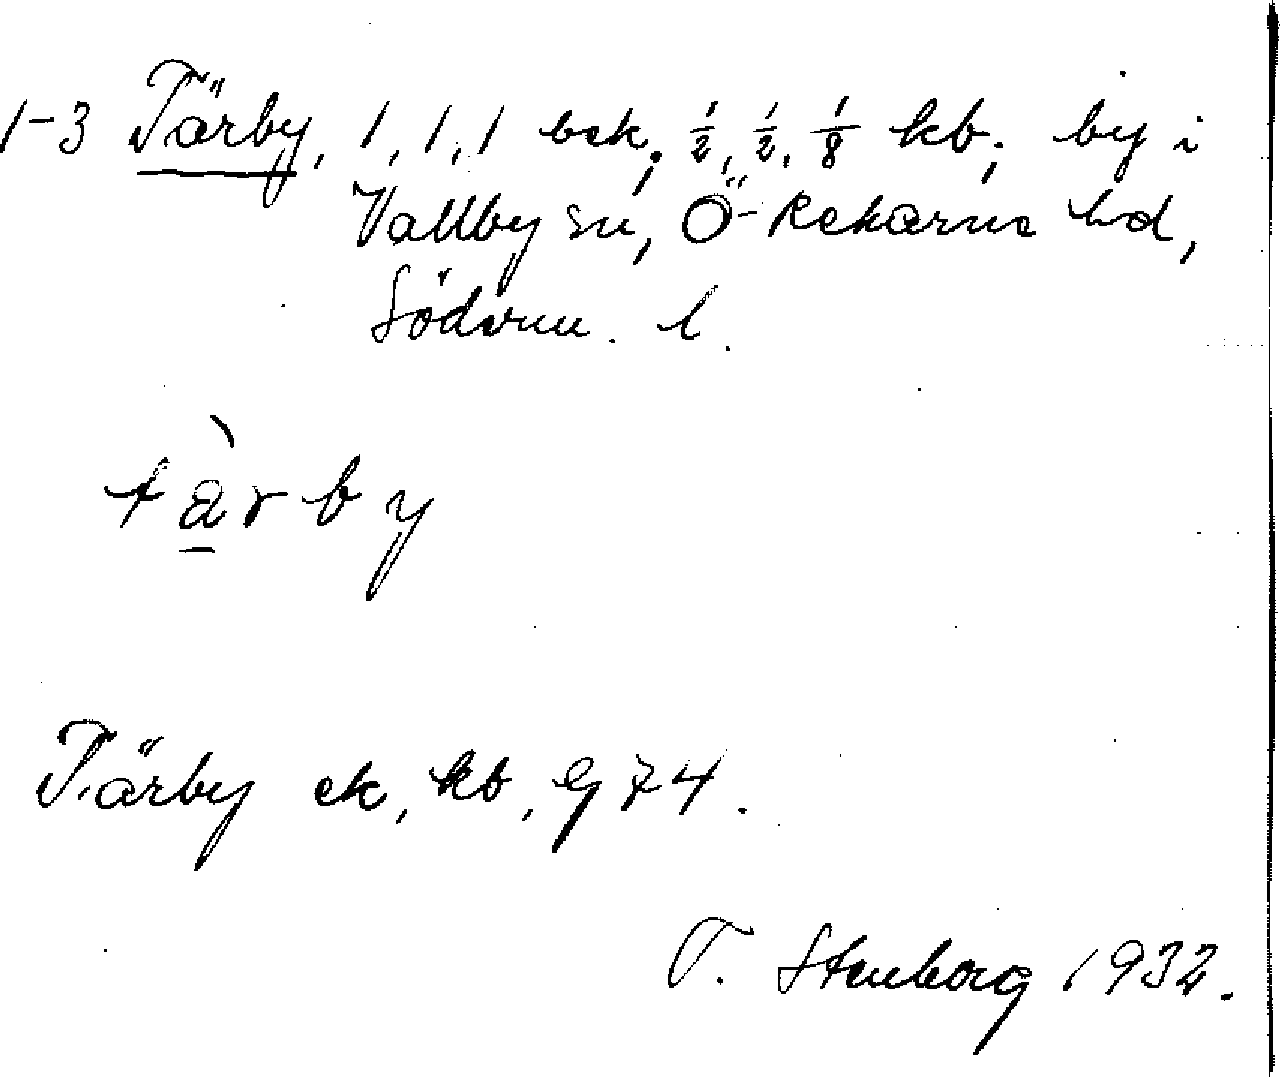 1-3 Tärby, 1, 1, 1 bsk; ½, ½, ⅛ kb; by i
Vallby sn, Ö-Rekarne hd,
Söderm. l.
tàrby
Tärby ek, kb, g 74.
T. Stenborg 1932.